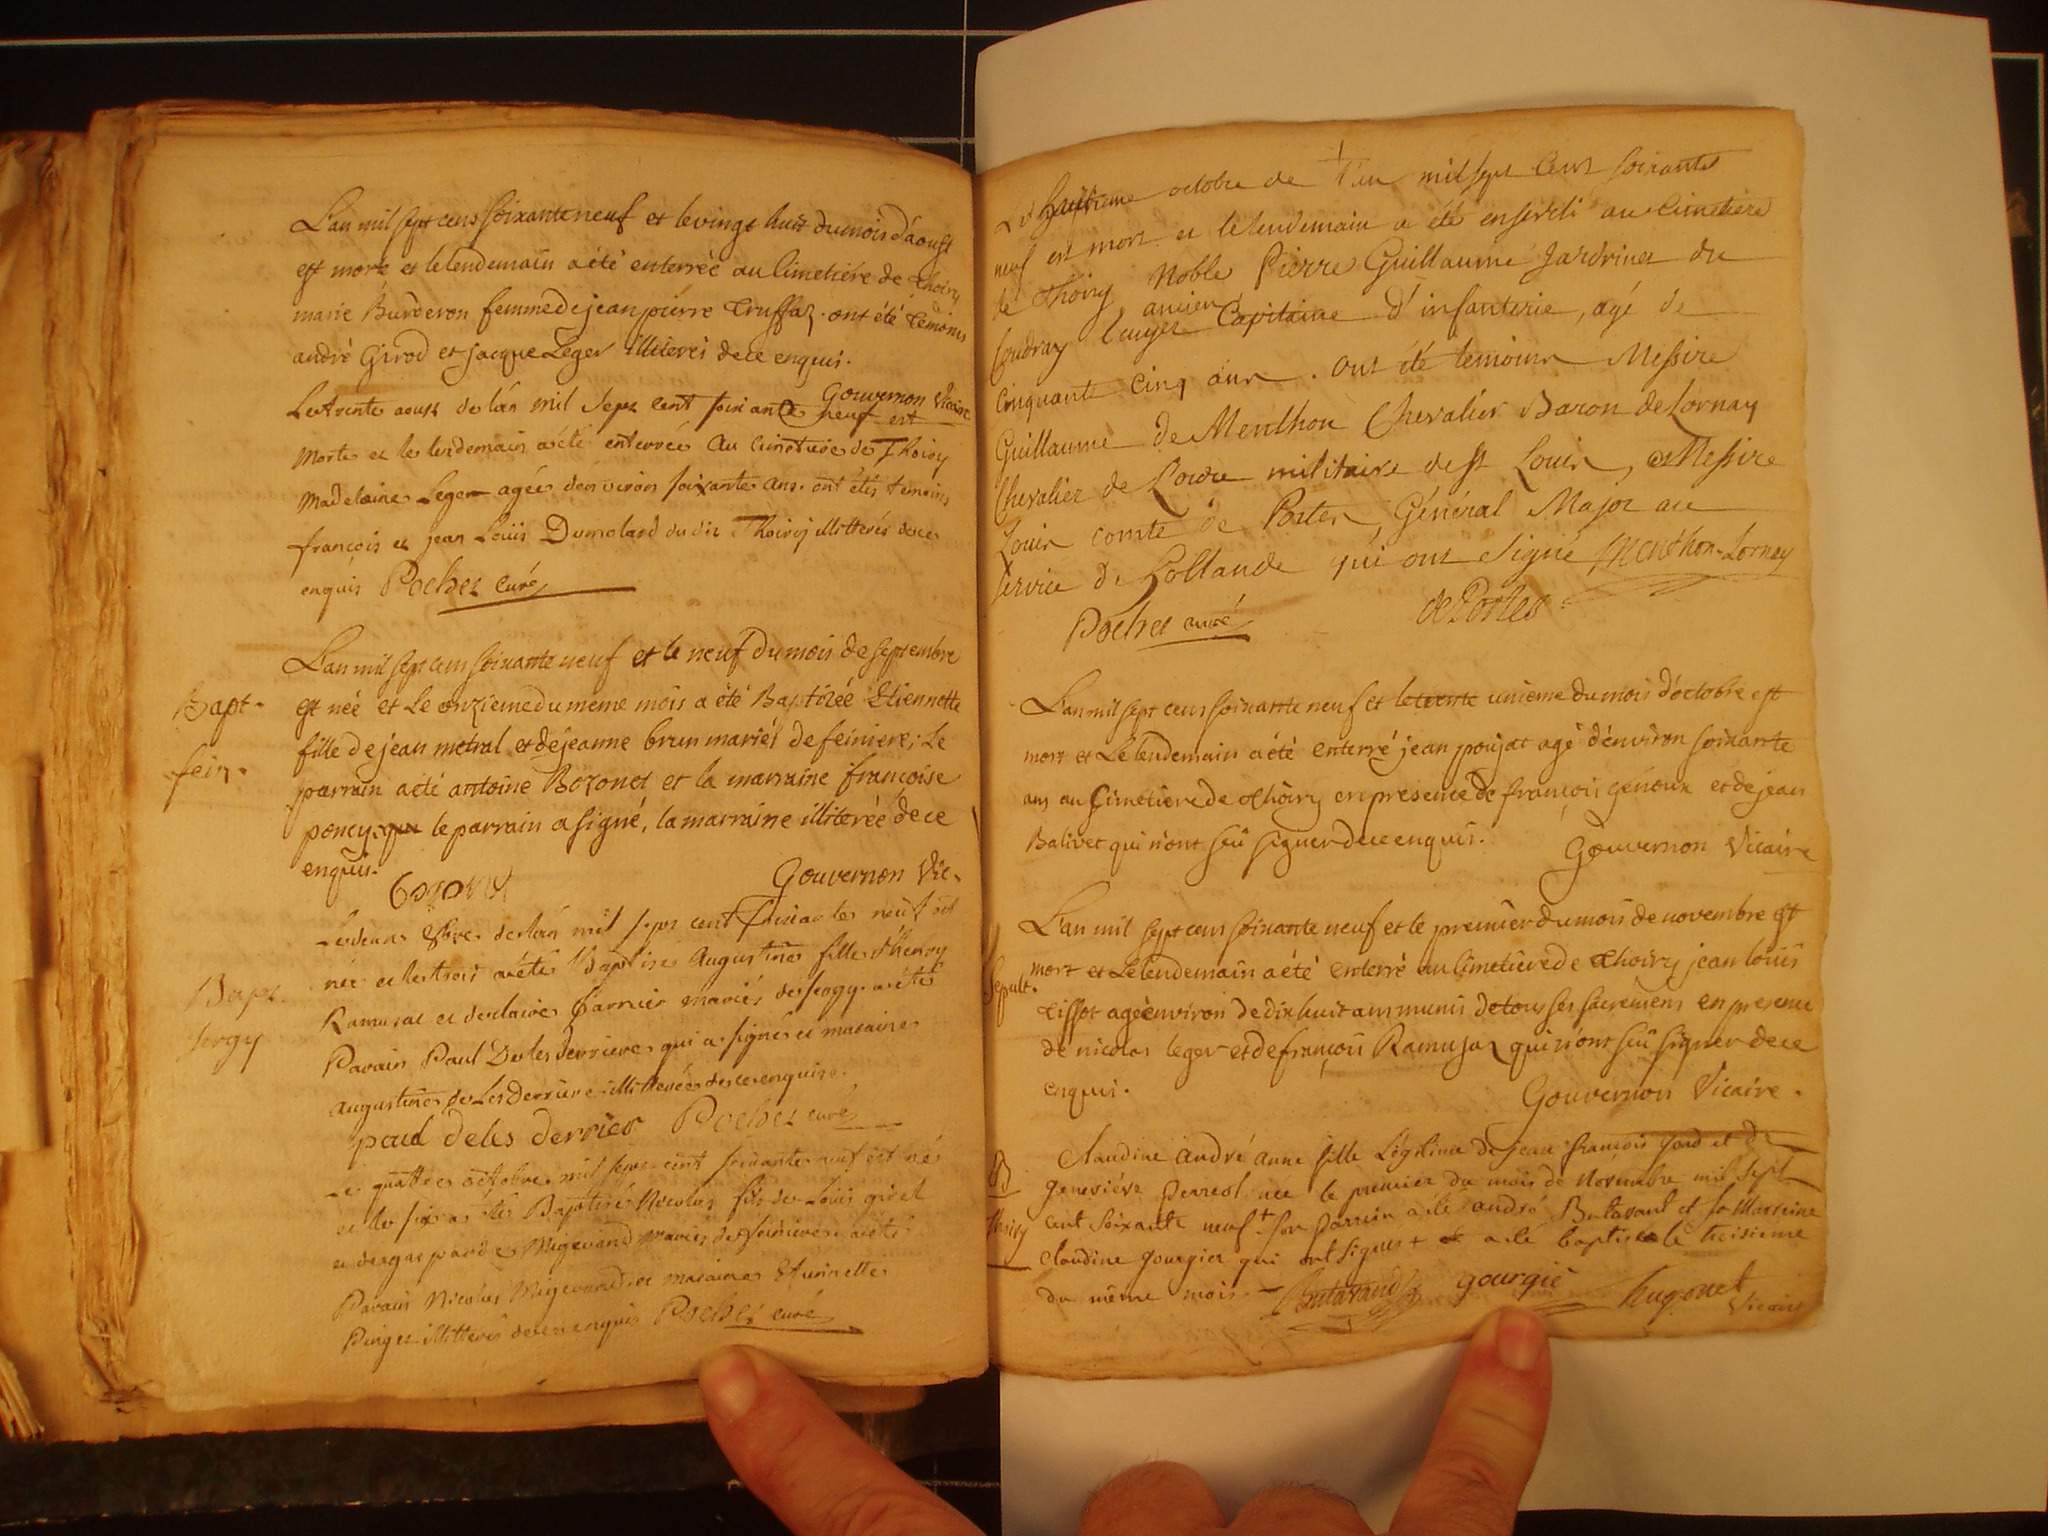 L'an mil sept cens soixante neuf et le vingt huit du mois d'aoust
est morte et le lendemain a été enterrée au Cimetiére de Thoiry
marie Burderon femme de jean pierre Truffaz. ont été temoins
andré Girod et jacque Leger illiterés de ce enquis.
Gouvernon Vicaire
Le trente aoust de l'an mil sept cent soixante neuf est
morte et le lendemain a été enterrée au cimetiere de Thoiry
Madelaine Leger agée d'environ soixante ans. ont étés temoins
françois et jean Loüis Dumolard du dit Thoiry illitterés de ce
enquis Pochet curé
L'an mil sept cens soixante neuf et le neuf du mois de septembre
Bapt.
est née et Le onzieme du même mois a été Baptizée Etiennette
fille de jean metral et de jeanne brun mariés de feiniere; Le
fein.
parrain a été antoine Bozonet et la marraine françoise
poncy que le parrain a signé, la marraine illiterée de ce
enquis.
Gouvernon Vic.
Le deux 8bre de l'an mil sept cent soixante neuf est
née et le trois a été Baptisée Augustine fille d'henry
Bapt.
Ramusat et de claire Garnier mariés de sergy. a été
sergy
Parain Paul De les Derriere qui a signé et maraine
augustine de Les Derriere illitterée de ce enquise.
paul deles derrier Pochet curé
Le quattre octobre mil sept cent soixante neuf est né
et le six a été Baptisé Nicolas fils de Louis girel
et de gasparde Migevand mariés de feiniere. a été
Parain Nicolas Migevand et maraine Etiennette
Pinget illitterés de ce enquis Pochet curé
Le huitieme octobre de l'an mil sept cent soixante
neuf est mort et le lendemain a été enseveli au cimetiere
de Thoiry Noble Pierre Guillaume Jardrinet du
Coudray Ecuyer ancien Capitaine d'infanterie, agé de
cinquante cinq ans. ont été temoins Messire
Guillaume de Menthon Chevalier Baron de Lornay
Chevalier de L'ordre militaire de St Louis, et Messire
Louis comte de Portes, Général Major au
service de Hollande qui ont signé Menthon-Lornay
Pochet curé de Portes
L'an mil sept cens soixante neuf et le trente unieme du mois d'octobre est
mort et Le lendemain a été enterré jean poujat agé d'environ soixante
ans au Cimetiere de Thoiry en presence de françois genoux et de jean
Balivet qui n'ont sçû signer de ce enquis. Gouvernon Vicaire
L'an mil sept cens soixante neuf et le premier du mois de novembre est
Sepult.
mort et Le lendemain a été enterré au Cimetiére de Thoiry jean louis
Tissot agé environ de dix huit ans muni de tous ses sacremens en presence
de nicolas leger et de françois Ramujaz qui n'ont sçû signer de ce
enquis.
Gouvernon Vicaire.
Claudine andré anne fille Légitime de jean françois gord et de
B
geneviéve perreol née le premier du mois de Novembre mil sept
Thoiry
cent soixante neuf + son parrein a été andré Butavand et sa Marreine
claudine gourgier qui ont signés + et a été baptisée le troisieme
du même mois. Butavand gourgié hugonet
Vicaire